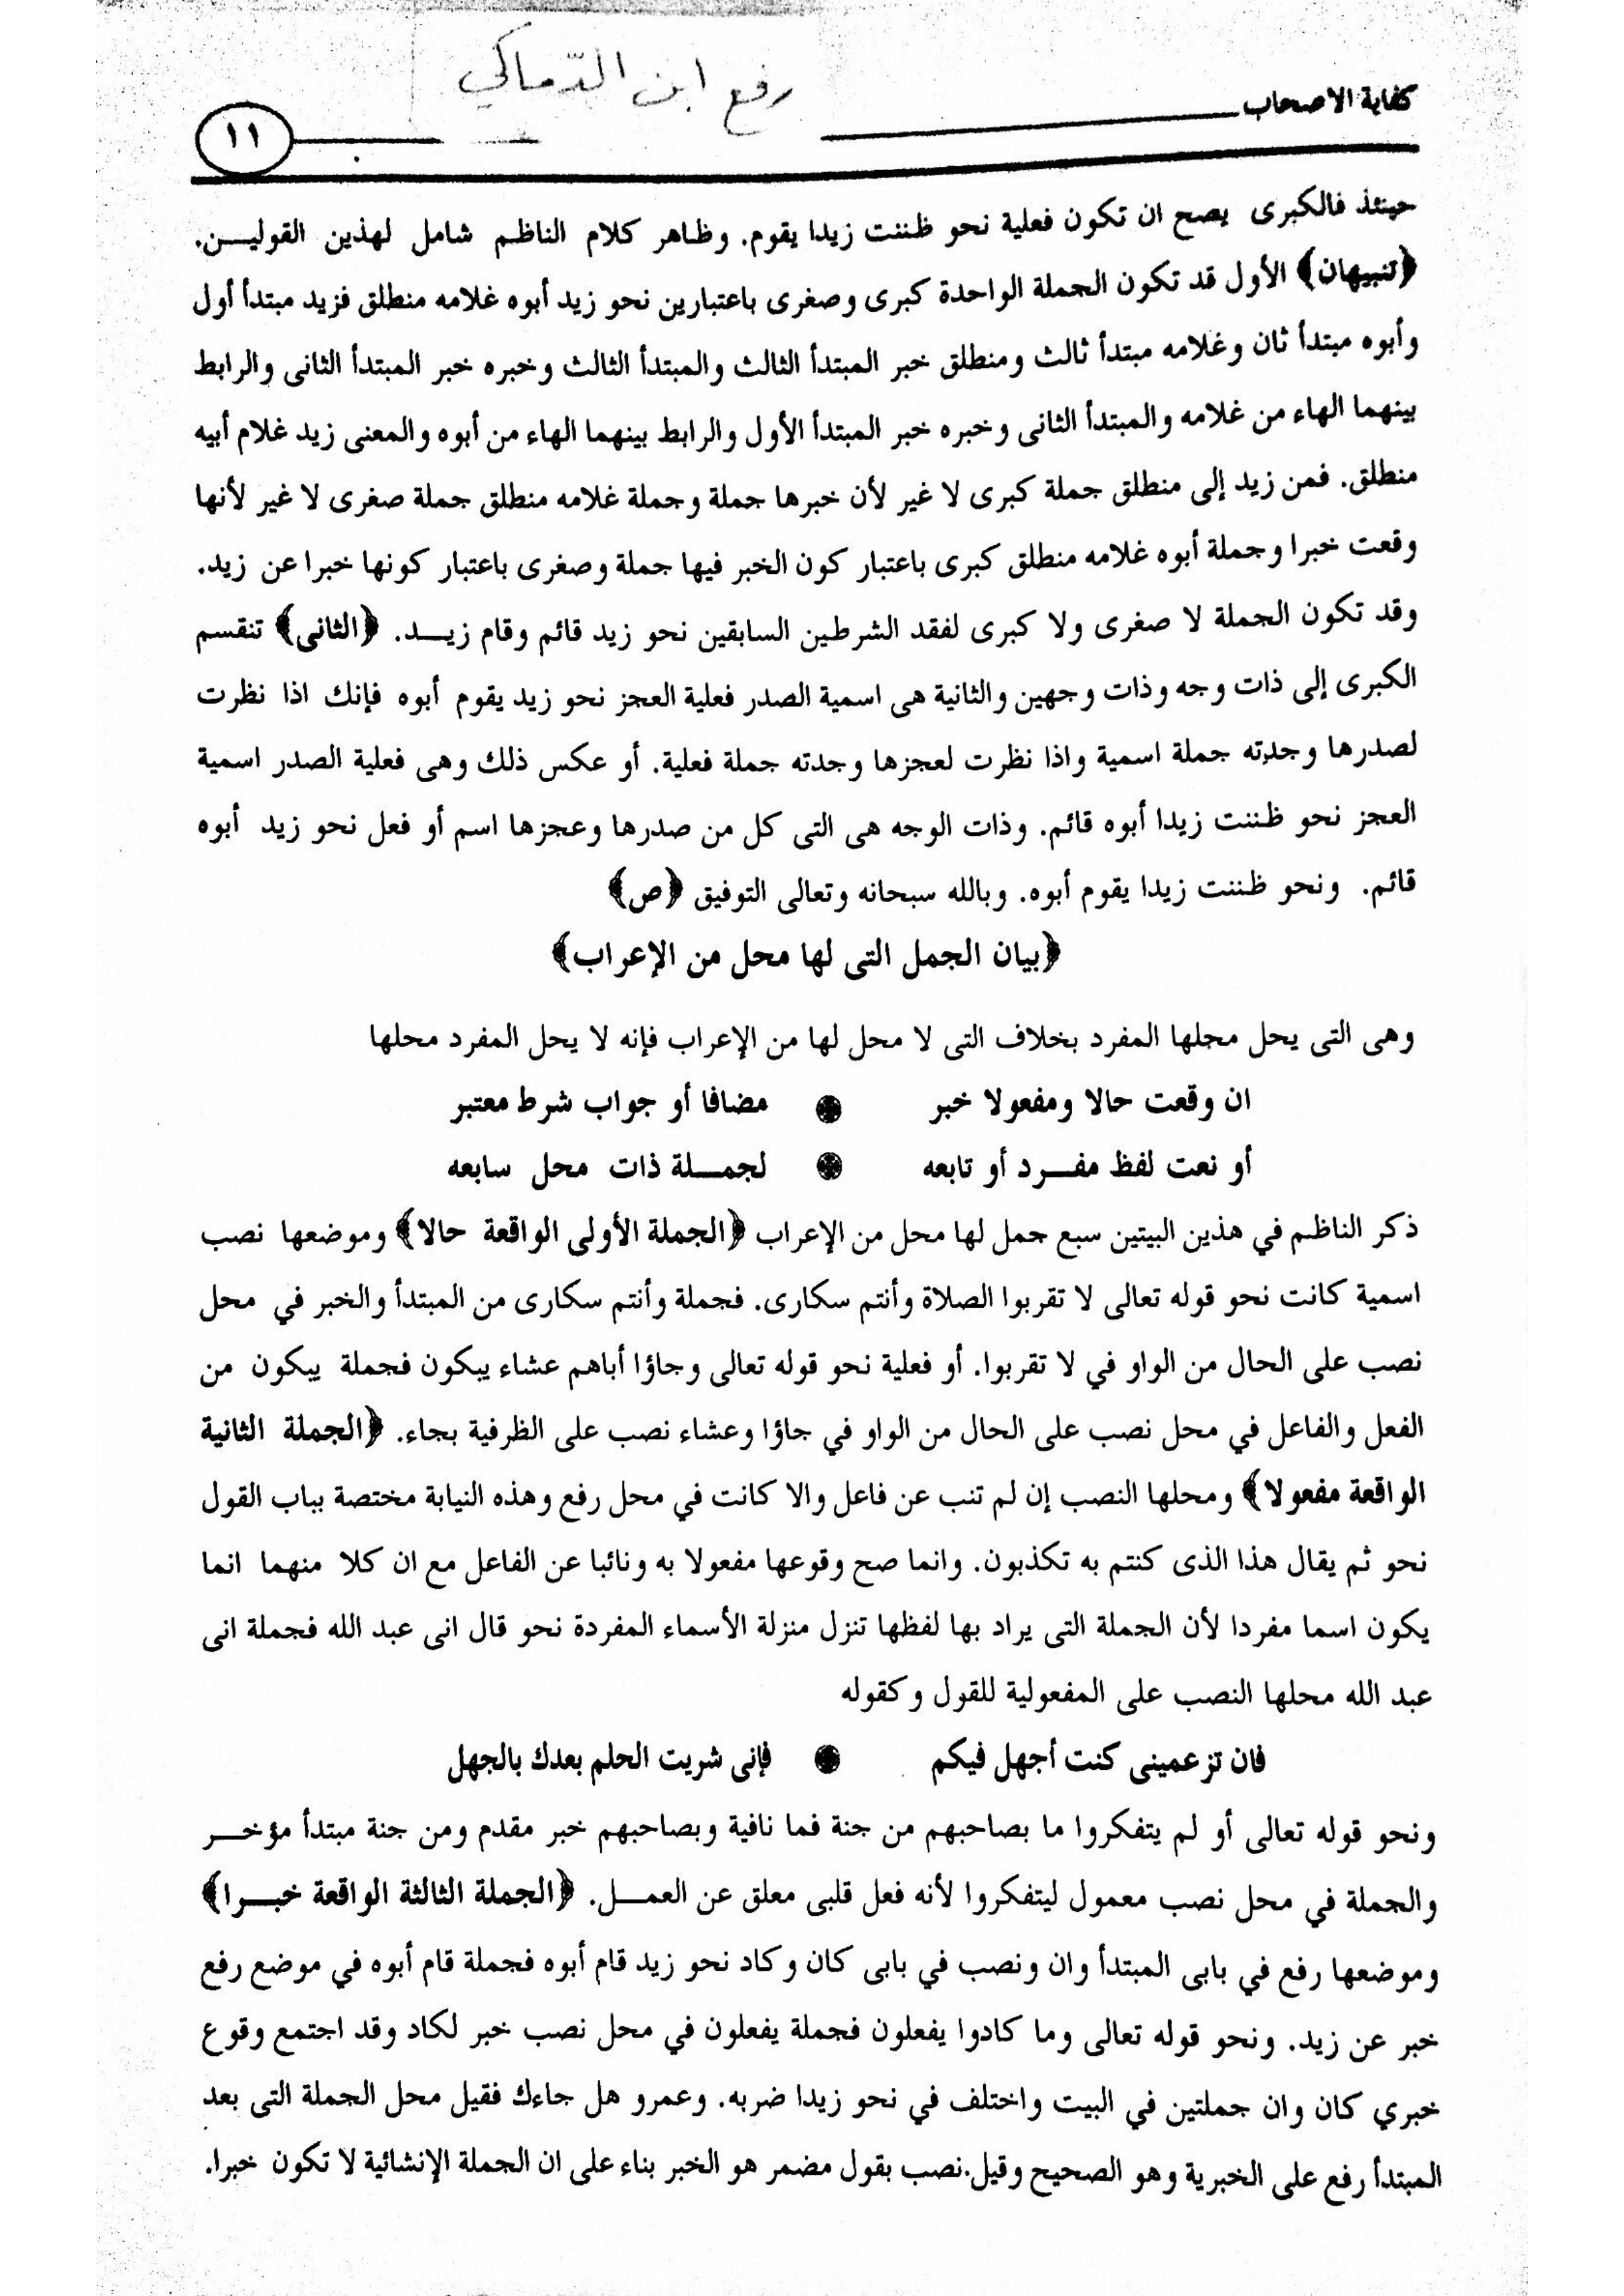 كفاية الاصحاب
رفع ابن الدّماكي
١١
حينئذ فالكبرى يصح ان تكون فعلية نحو ظننت زيدا يقوم. وظاهر كلام الناظم شامل لهذين القوليـــن.
﴿تنبيهان﴾ الأول قد تكون الجملة الواحدة كبرى وصغرى باعتبارين نحو زيد أبوه غلامه منطلق فزيد مبتدأ أول
وأبوه مبتدأ ثان وغلامه مبتدأ ثالث ومنطلق خبر المبتدأ الثالث والمبتدأ الثالث وخبره خبر المبتدأ الثانى والرابط
بينهما الهاء من غلامه والمبتدأ الثانى وخبره خبر المبتدأ الأول والرابط بينهما الهاء من أبوه والمعنى زيد غلام أبيه
منطلق. فمن زيد إلى منطلق جملة كبرى لا غير لأن خبرها جملة وجملة غلامه منطلق جملة صغرى لا غير لأنها
وقعت خبرا وجملة أبوه غلامه منطلق كبرى باعتبار كون الخبر فيها جملة وصغرى باعتبار كونها خبرا عن زيد.
وقد تكون الجملة لا صغرى ولا كبرى لفقد الشرطين السابقين نحو زيد قائم وقام زيـــد. ﴿الثانى﴾ تنقسم
الكبرى إلى ذات وجه وذات وجهين والثانية هى اسمية الصدر فعلية العجز نحو زيد يقوم أبوه فإنك اذا نظرت
لصدرها وجدته جملة اسمية واذا نظرت لعجزها وجدته جملة فعلية. أو عكس ذلك وهى فعلية الصدر اسمية
العجز نحو ظننت زيدا أبوه قائم. وذات الوجه هى التى كل من صدرها وعجزها اسم أو فعل نحو زيد أبوه
قائم. ونحو ظننت زيدا يقوم أبوه. وبالله سبحانه وتعالى التوفيق ﴿ص﴾
﴿بيان الجمل التى لها محل من الإعراب﴾
وهى التى يحل محلها المفرد بخلاف التى لا محل لها من الإعراب فإنه لا يحل المفرد محلها
ان وقعت حالا ومفعولا خبر ❋ مضافا أو جواب شرط معتبر
أو نعت لفظ مفـــرد أو تابعه ❋ لجمـــلة ذات محل سابعه
ذكر الناظم في هذين البيتين سبع جمل لها محل من الإعراب ﴿الجملة الأولى الواقعة حالا﴾ وموضعها نصب
اسمية كانت نحو قوله تعالى لا تقربوا الصلاة وأنتم سكارى. فجملة وأنتم سكارى من المبتدأ والخبر في محل
نصب على الحال من الواو في لا تقربوا. أو فعلية نحو قوله تعالى وجاؤا أباهم عشاء يبكون فجملة يبكون من
الفعل والفاعل في محل نصب على الحال من الواو في جاؤا وعشاء نصب على الظرفية بجاء. ﴿الجملة الثانية
الواقعة مفعولا﴾ ومحلها النصب إن لم تنب عن فاعل والا كانت في محل رفع وهذه النيابة مختصة بباب القول
نحو ثم يقال هذا الذى كنتم به تكذبون. وانما صح وقوعها مفعولا به ونائبا عن الفاعل مع ان كلا منهما انما
يكون اسما مفردا لأن الجملة التى يراد بها لفظها تنزل منزلة الأسماء المفردة نحو قال انى عبد الله فجملة انى
عبد الله محلها النصب على المفعولية للقول وكقوله
فان تزعمينى كنت أجهل فيكم ❋ فإنى شريت الحلم بعدك بالجهل
ونحو قوله تعالى أو لم يتفكروا ما بصاحبهم من جنة فما نافية وبصاحبهم خبر مقدم ومن جنة مبتدأ مؤخـــر
والجملة في محل نصب معمول ليتفكروا لأنه فعل قلبى معلق عن العمـــل. ﴿الجملة الثالثة الواقعة خبـــرا﴾
وموضعها رفع في بابى المبتدأ وان ونصب في بابى كان وكاد نحو زيد قام أبوه فجملة قام أبوه في موضع رفع
خبر عن زيد. ونحو قوله تعالى وما كادوا يفعلون فجملة يفعلون في محل نصب خبر لكاد وقد اجتمع وقوع
خبري كان وان جملتين في البيت واختلف في نحو زيدا ضربه. وعمرو هل جاءك فقيل محل الجملة التى بعد
المبتدأ رفع على الخبرية وهو الصحيح وقيل نصب بقول مضمر هو الخبر بناء على ان الجملة الإنشائية لا تكون خبرا.